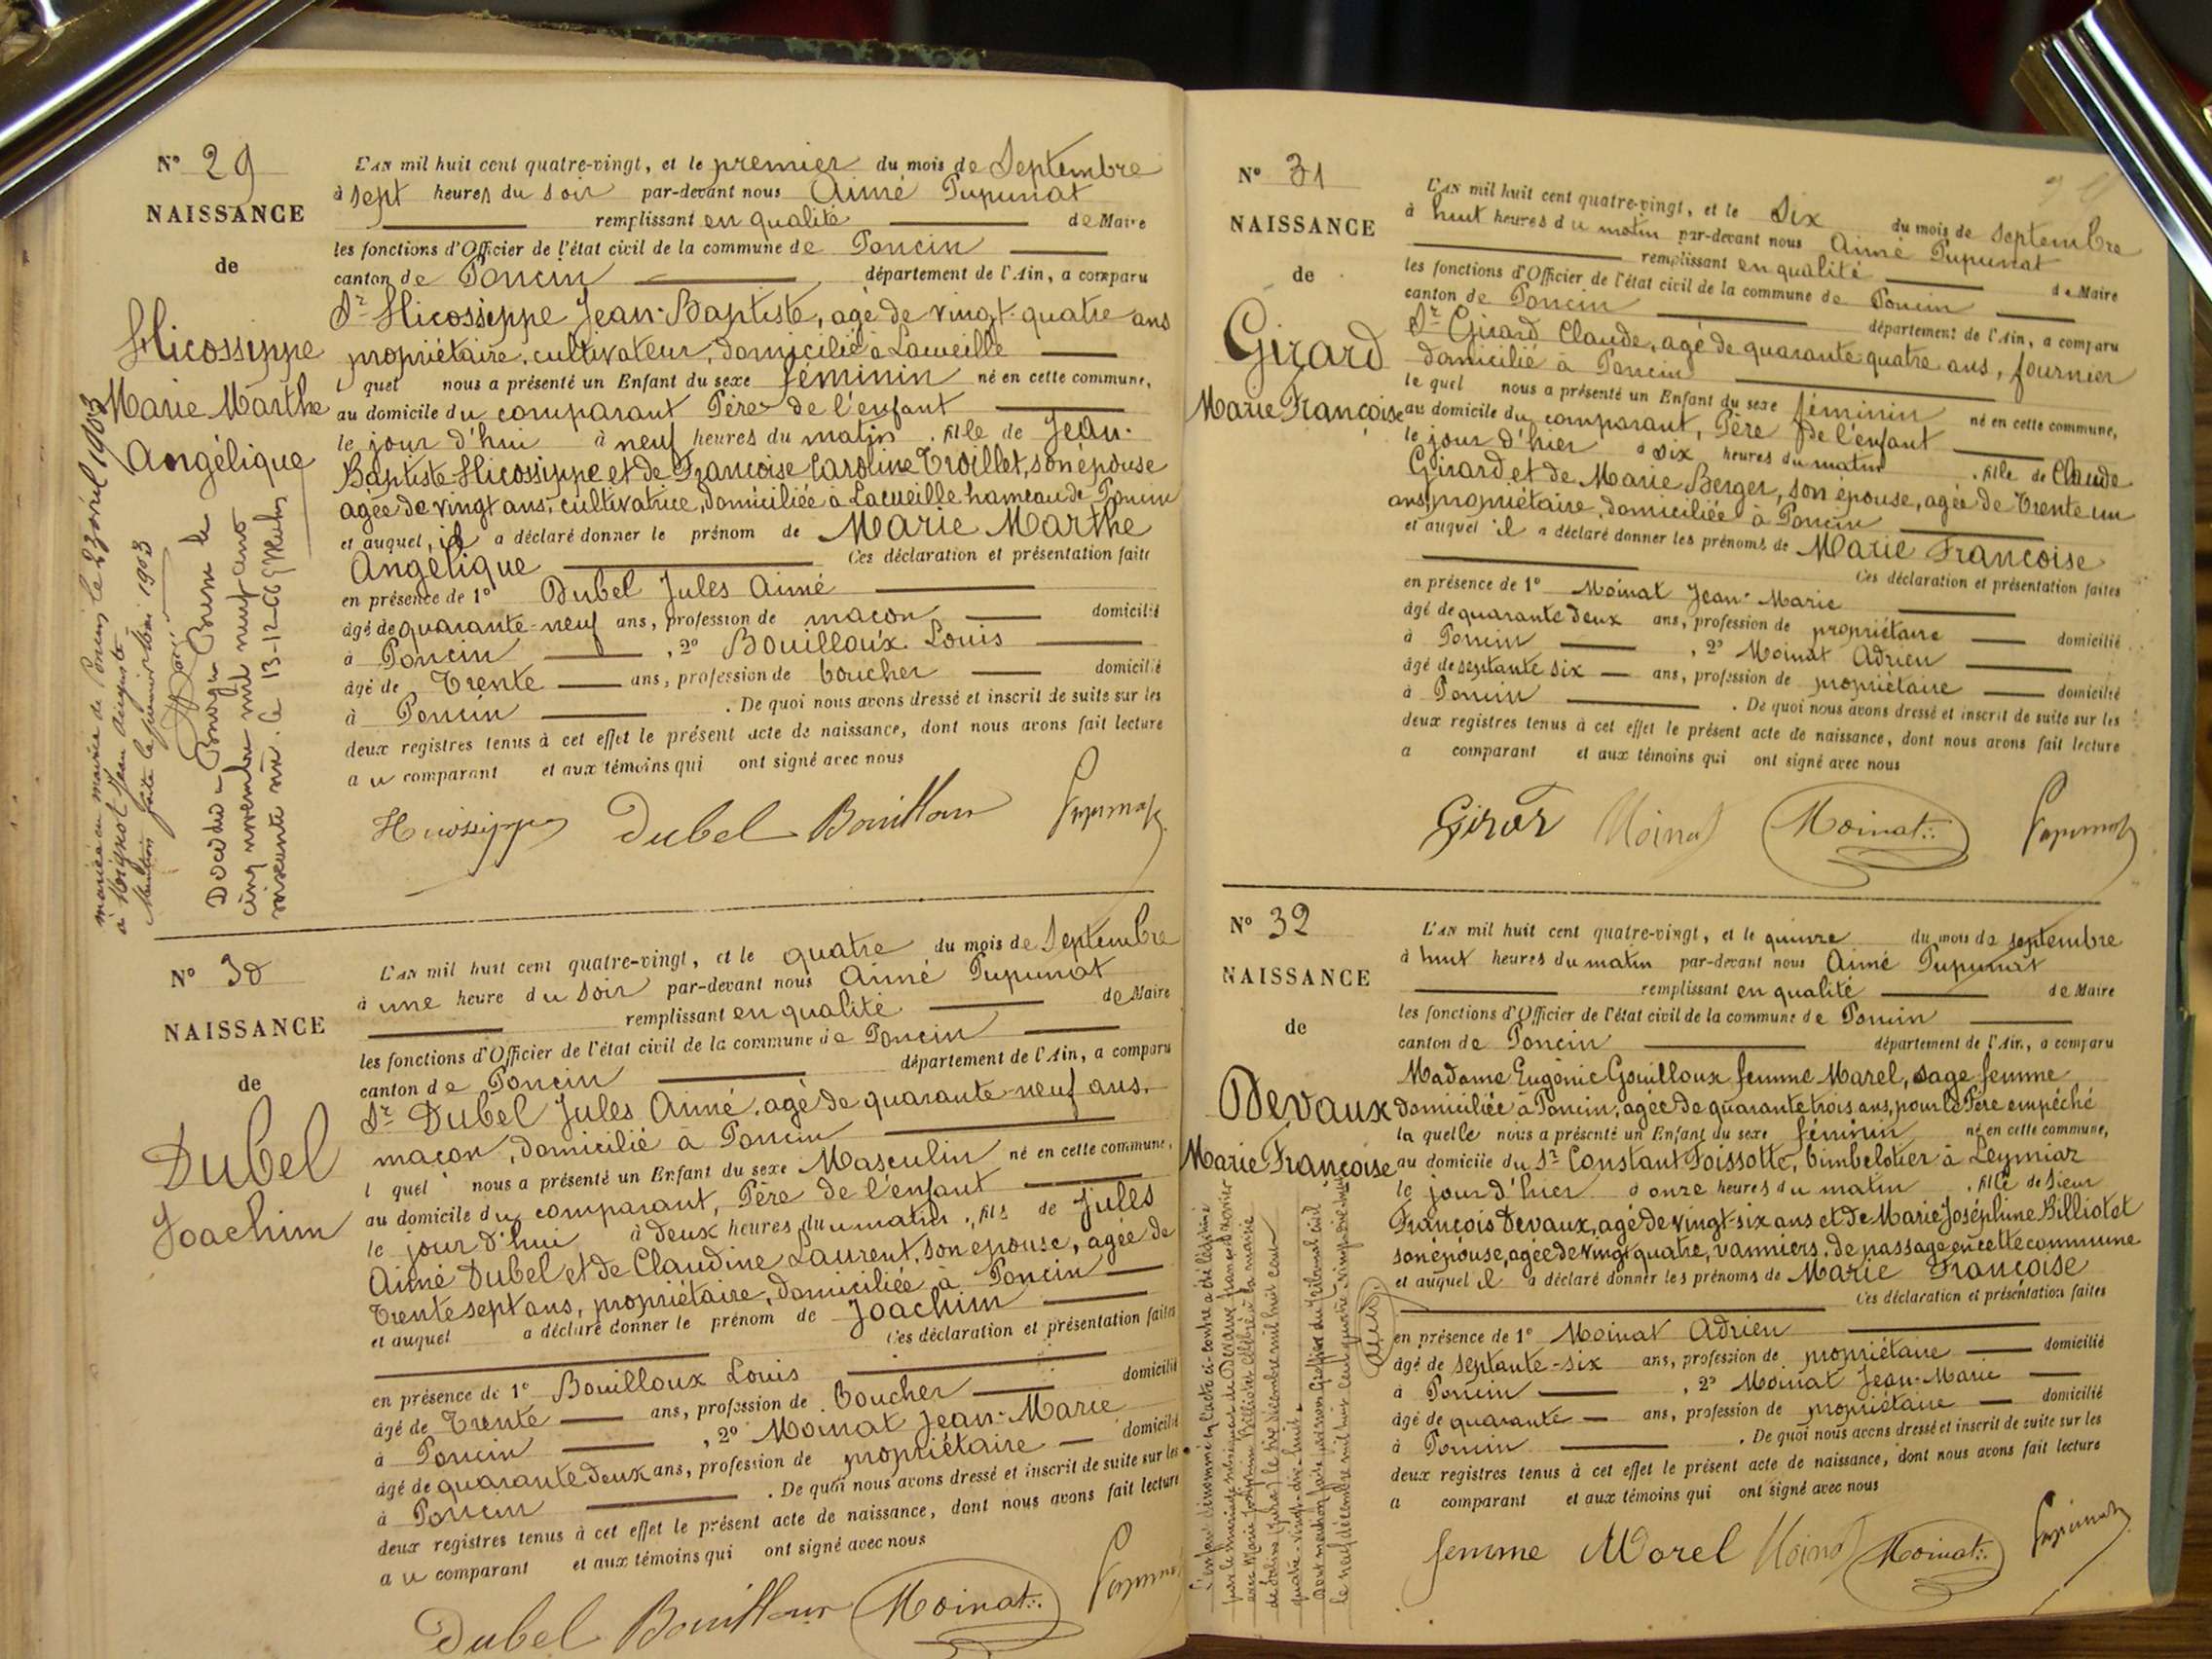 N° 29
NAISSANCE
de
Hicossippe
Marie Marthe
Angélique
mariée en mairie de Poncin le 23 avril 1903
à Jean Auguste
Mention faite le premier Mai 1903
Décédée à Bourg en Bresse le
cinq novembre mil neuf cent
soixante six. le 13-12-66
L'AN mil huit cent quatre-vingt, et le premier du mois de Septembre
à sept heures du soir par-devant nous Aimé Pupunat
remplissant en qualité de Maire
les fonctions d'Officier de l'état civil de la commune de Poncin
canton de Poncin département de l'Ain, a comparu
Sr Hicossippe Jean-Baptiste, agé de vingt-quatre ans
propriétaire, cultivateur, domicilié à Lacueille
l quel nous a présenté un Enfant du sexe féminin né en cette commune,
au domicile du comparant Père de l'enfant
le jour d'hui à neuf heures du matin, fille de Jean-
Baptiste Hicossippe et de Françoise Caroline Troillet, son épouse
agée de vingt ans, cultivatrice, domiciliée à Lacueille hameau de Poncin
et auquel, il a déclaré donner le prénom de Marie Marthe
Angélique Ces déclaration et présentation faite
en présence de 1° Dubel Jules Aimé
âgé de quarante-neuf ans, profession de maçon domicilié
à Poncin, 2° Bouilloux Louis
âgé de Trente ans, profession de boucher domicilié
à Poncin. De quoi nous avons dressé et inscrit de suite sur les
deux registres tenus à cet effet le présent acte de naissance, dont nous avons fait lecture
au comparant et aux témoins qui ont signé avec nous
Hicossippe Dubel Bouilloux Pupunat
N° 30
NAISSANCE
de
Dubel
Joachim
L'AN mil huit cent quatre-vingt, et le quatre du mois de Septembre
à une heure du soir par-devant nous Aimé Pupunat
remplissant en qualité de Maire
les fonctions d'Officier de l'état civil de la commune de Poncin
canton de Poncin département de l'Ain, a comparu
Sr Dubel Jules Aimé, agé de quarante-neuf ans,
maçon, domicilié à Poncin
l quel nous a présenté un Enfant du sexe Masculin né en cette commune,
au domicile du comparant, Père de l'enfant
le jour d'hui à deux heures du matin, fils de Jules
Aimé Dubel et de Claudine Laurent, son épouse, agée de
Trente sept ans, propriétaire, domiciliée à Poncin
et auquel a déclaré donner le prénom de Joachim
Ces déclaration et présentation faites
en présence de 1° Bouilloux Louis
âgé de Trente ans, profession de Boucher domicilié
à Poncin, 2° Moinat Jean-Marie
âgé de quarante deux ans, profession de propriétaire domicilié
à Poncin. De quoi nous avons dressé et inscrit de suite sur les
deux registres tenus à cet effet le présent acte de naissance, dont nous avons fait lecture
au comparant et aux témoins qui ont signé avec nous
Dubel Bouilloux Moinat Pupunat
N° 31
NAISSANCE
de
Girard
Marie Françoise
L'AN mil huit cent quatre-vingt, et le Six du mois de Septembre
à huit heures du matin par-devant nous Aimé Pupunat
remplissant en qualité de Maire
les fonctions d'Officier de l'état civil de la commune de Poncin
canton de Poncin département de l'Ain, a comparu
Sr Girard Claude, agé de quarante quatre ans, fournier
domicilié à Poncin
le quel nous a présenté un Enfant du sexe féminin né en cette commune,
au domicile du comparant, Père de l'enfant
le jour d'hier à six heures du matin, fille de Claude
Girard et de Marie Berger, son épouse, agée de Trente un
ans, propriétaire, domiciliée à Poncin
et auquel il a déclaré donner les prénoms de Marie Françoise
Ces déclaration et présentation faites
en présence de 1° Moinat Jean-Marie
âgé de quarante deux ans, profession de propriétaire domicilié
à Poncin, 2° Moinat Adrien
âgé de septante six ans, profession de propriétaire domicilié
à Poncin. De quoi nous avons dressé et inscrit de suite sur les
deux registres tenus à cet effet le présent acte de naissance, dont nous avons fait lecture
a comparant et aux témoins qui ont signé avec nous
Girar Moinat Moinat Pupunat
N° 32
NAISSANCE
de
Devaux
Marie Françoise
L'enfant dénommé en l'acte ci-contre a été légitimé
par le mariage subséquent de Devaux françois
avec Marie Joséphine Billiotet célébré à la mairie
de (Jura) le six décembre mil huit cent
quatre-vingt-dix-huit.
Dont mention faite par nous Greffier du Tribunal civil
le neuf décembre mil huit cent quatre-vingt-dix-huit
L'AN mil huit cent quatre-vingt, et le quinze du mois de septembre
à huit heures du matin par-devant nous Aimé Pupunat
remplissant en qualité de Maire
les fonctions d'Officier de l'état civil de la commune de Poncin
canton de Poncin département de l'Ain, a comparu
Madame Eugénie Gouilloux femme Marel, sage femme
domiciliée à Poncin, agée de quarante trois ans, pour le Père empéché
la quelle nous a présenté un Enfant du sexe féminin né en cette commune,
au domicile du Sr Constant Foissotte, bimbelotier à Leymiar
le jour d'hier à onze heures du matin, fille de sieur
François Devaux, agé de vingt-six ans et de Marie Joséphine Billiotet
son épouse, agée de vingt quatre, vanniers, de passage en cette commune
et auquel il a déclaré donner les prénoms de Marie Françoise
Ces déclaration et présentation faites
en présence de 1° Moinat Adrien
âgé de septante-six ans, profession de propriétaire domicilié
à Poncin, 2° Moinat Jean-Marie
âgé de quarante ans, profession de propriétaire domicilié
à Poncin. De quoi nous avons dressé et inscrit de suite sur les
deux registres tenus à cet effet le présent acte de naissance, dont nous avons fait lecture
a comparant et aux témoins qui ont signé avec nous
femme Morel Moinat Moinat Pupunat